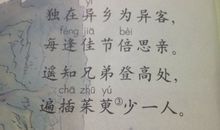 独在异乡为异客，
féng jiā bèi
每逢佳节倍思亲。
遥知兄弟登高处，
chā zhū yú
遍插茱萸③少一人。